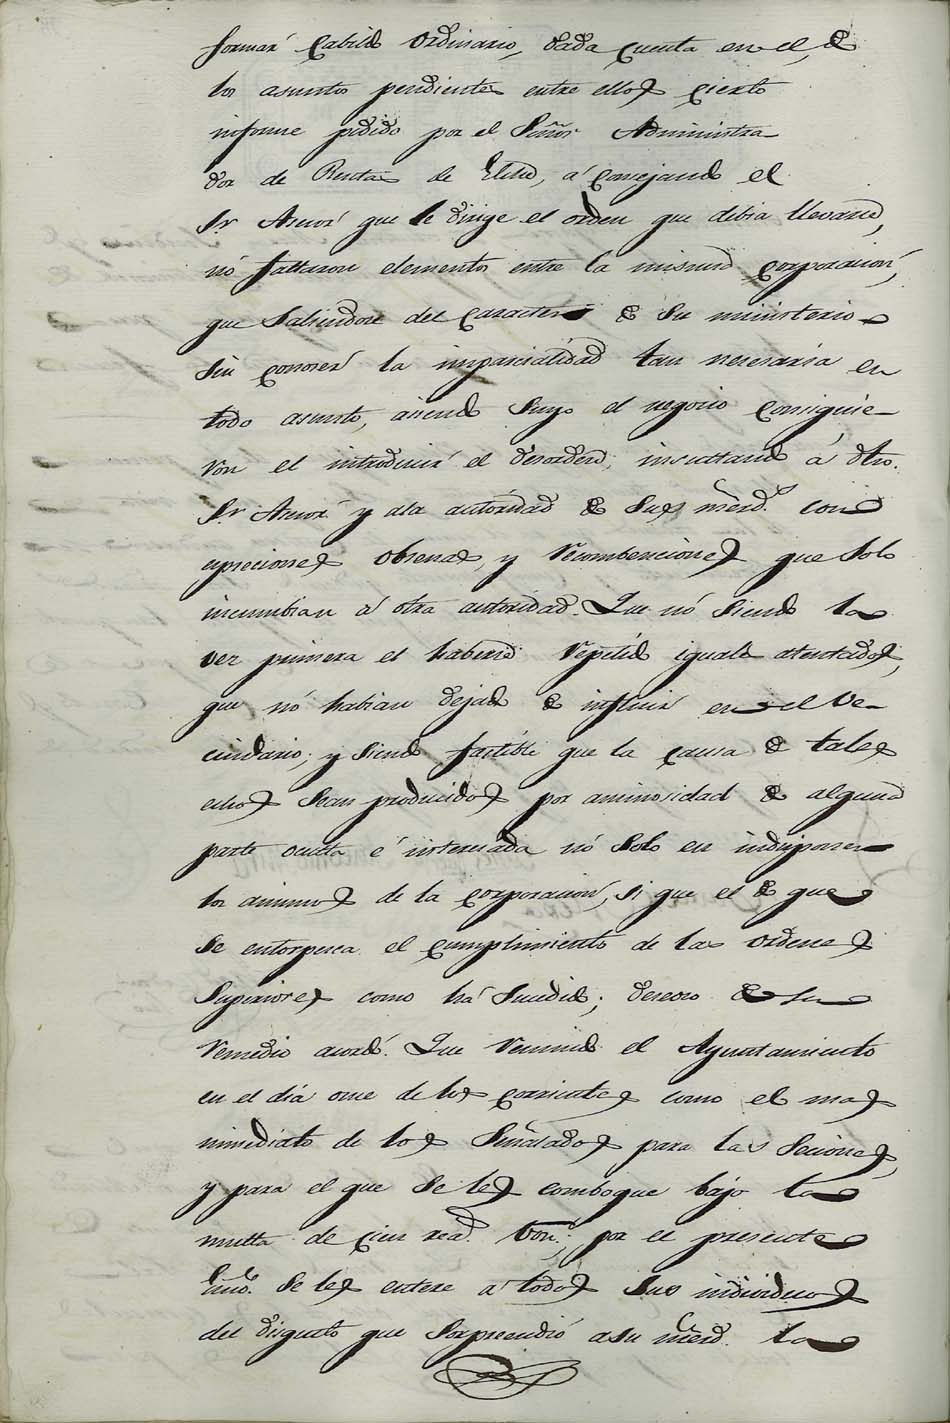 formar Cabildo Ordinario, dada cuenta en el, de
los asuntos pendientes entre ellos cierto
informe pedido por el Señor Administra
dor de Rentas de Elche, aconsejando el
Sr. Asesor que le dirige el orden que debia llevarse,
nó faltaron elementos entre la misma corporacion,
que Saliendose del Caracter de Su ministerio
Sin conocer la imparcialidad tan necesaria en
todo asunto, aciendo Suyo el negocio Consiguie-
ron el introducir el desorden, insultando á dho.
Sr. Asesor y ala autoridad de Su merd. con
epreciones Obsenas, y reconbenciones que Solo
incumbian á otra autoridad. Que nó Siendo la
vez primera el haberse repetido iguales atentados,
que nó habian dejado de influir en el Ve-
cindario; y Siendo factible que la causa de tales
echos Sean producidos por animosidad de alguna
parte oculta é interesada nó Solo en indisponer
los animos de la corporacion, Si que el de que
Se entorpesca el cumplimiento de las Ordenes
Superiores como há Sucedido; deseoso de Su
remedio acordó: Que reunido el Ayuntamiento
en el dia once de los corrientes como el mas
inmediato de los Señalados para las Seciones,
y para el que Se les comboque bajo la
multa de cien rea.s von; por el presente
Esno. Se les entere á todos Sus individuos
del disgusto que Sorprendió a su merd. la